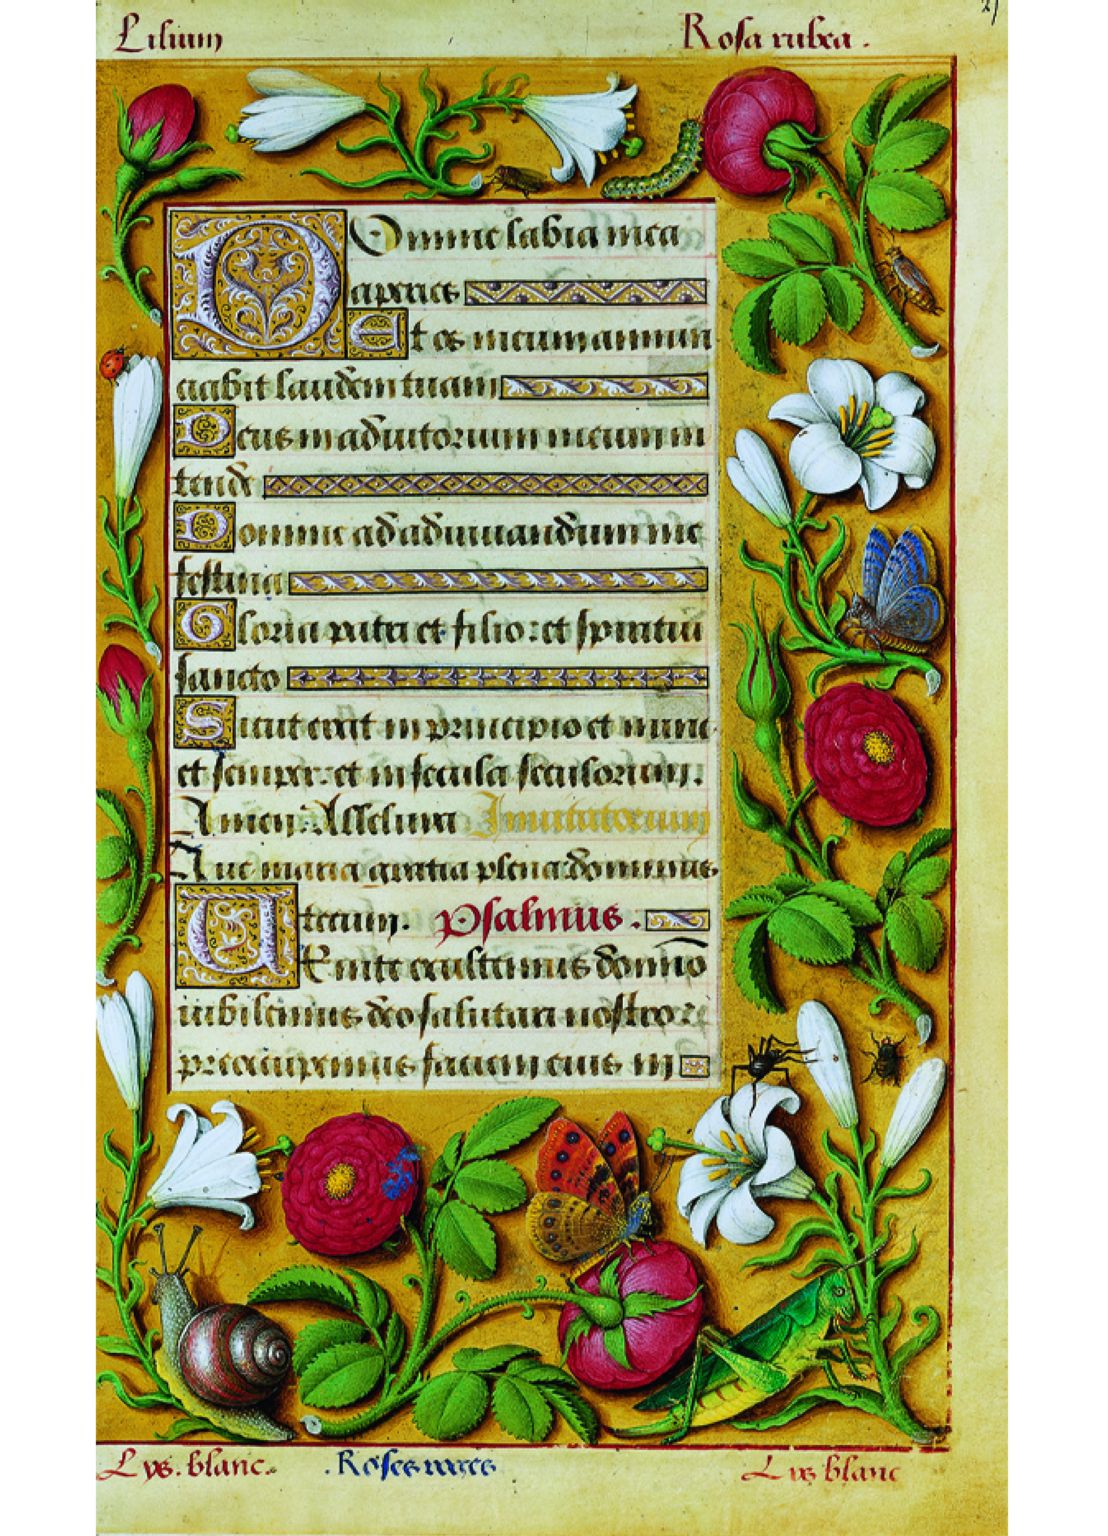 Lilium
Rosa rubea.
27
Domine labia mea
aperies
Et os meum annun
ciabit laudem tuam
Deus in adiutorium meum in
tende
Domine ad adiuuandum me
festina
Gloria patri et filio: et spiritui
sancto
Sicut erat in principio et nunc
et semper: et in secula seculorum.
Amen. Alleluya Inuitatorium
Aue maria gratia plena dominus
tecum. Psalmus.
Uenite exultemus domino
iubilemus deo salutari nostro:
preoccupemus faciem eius in
Lys. blanc.
.Roses
Lis blanc